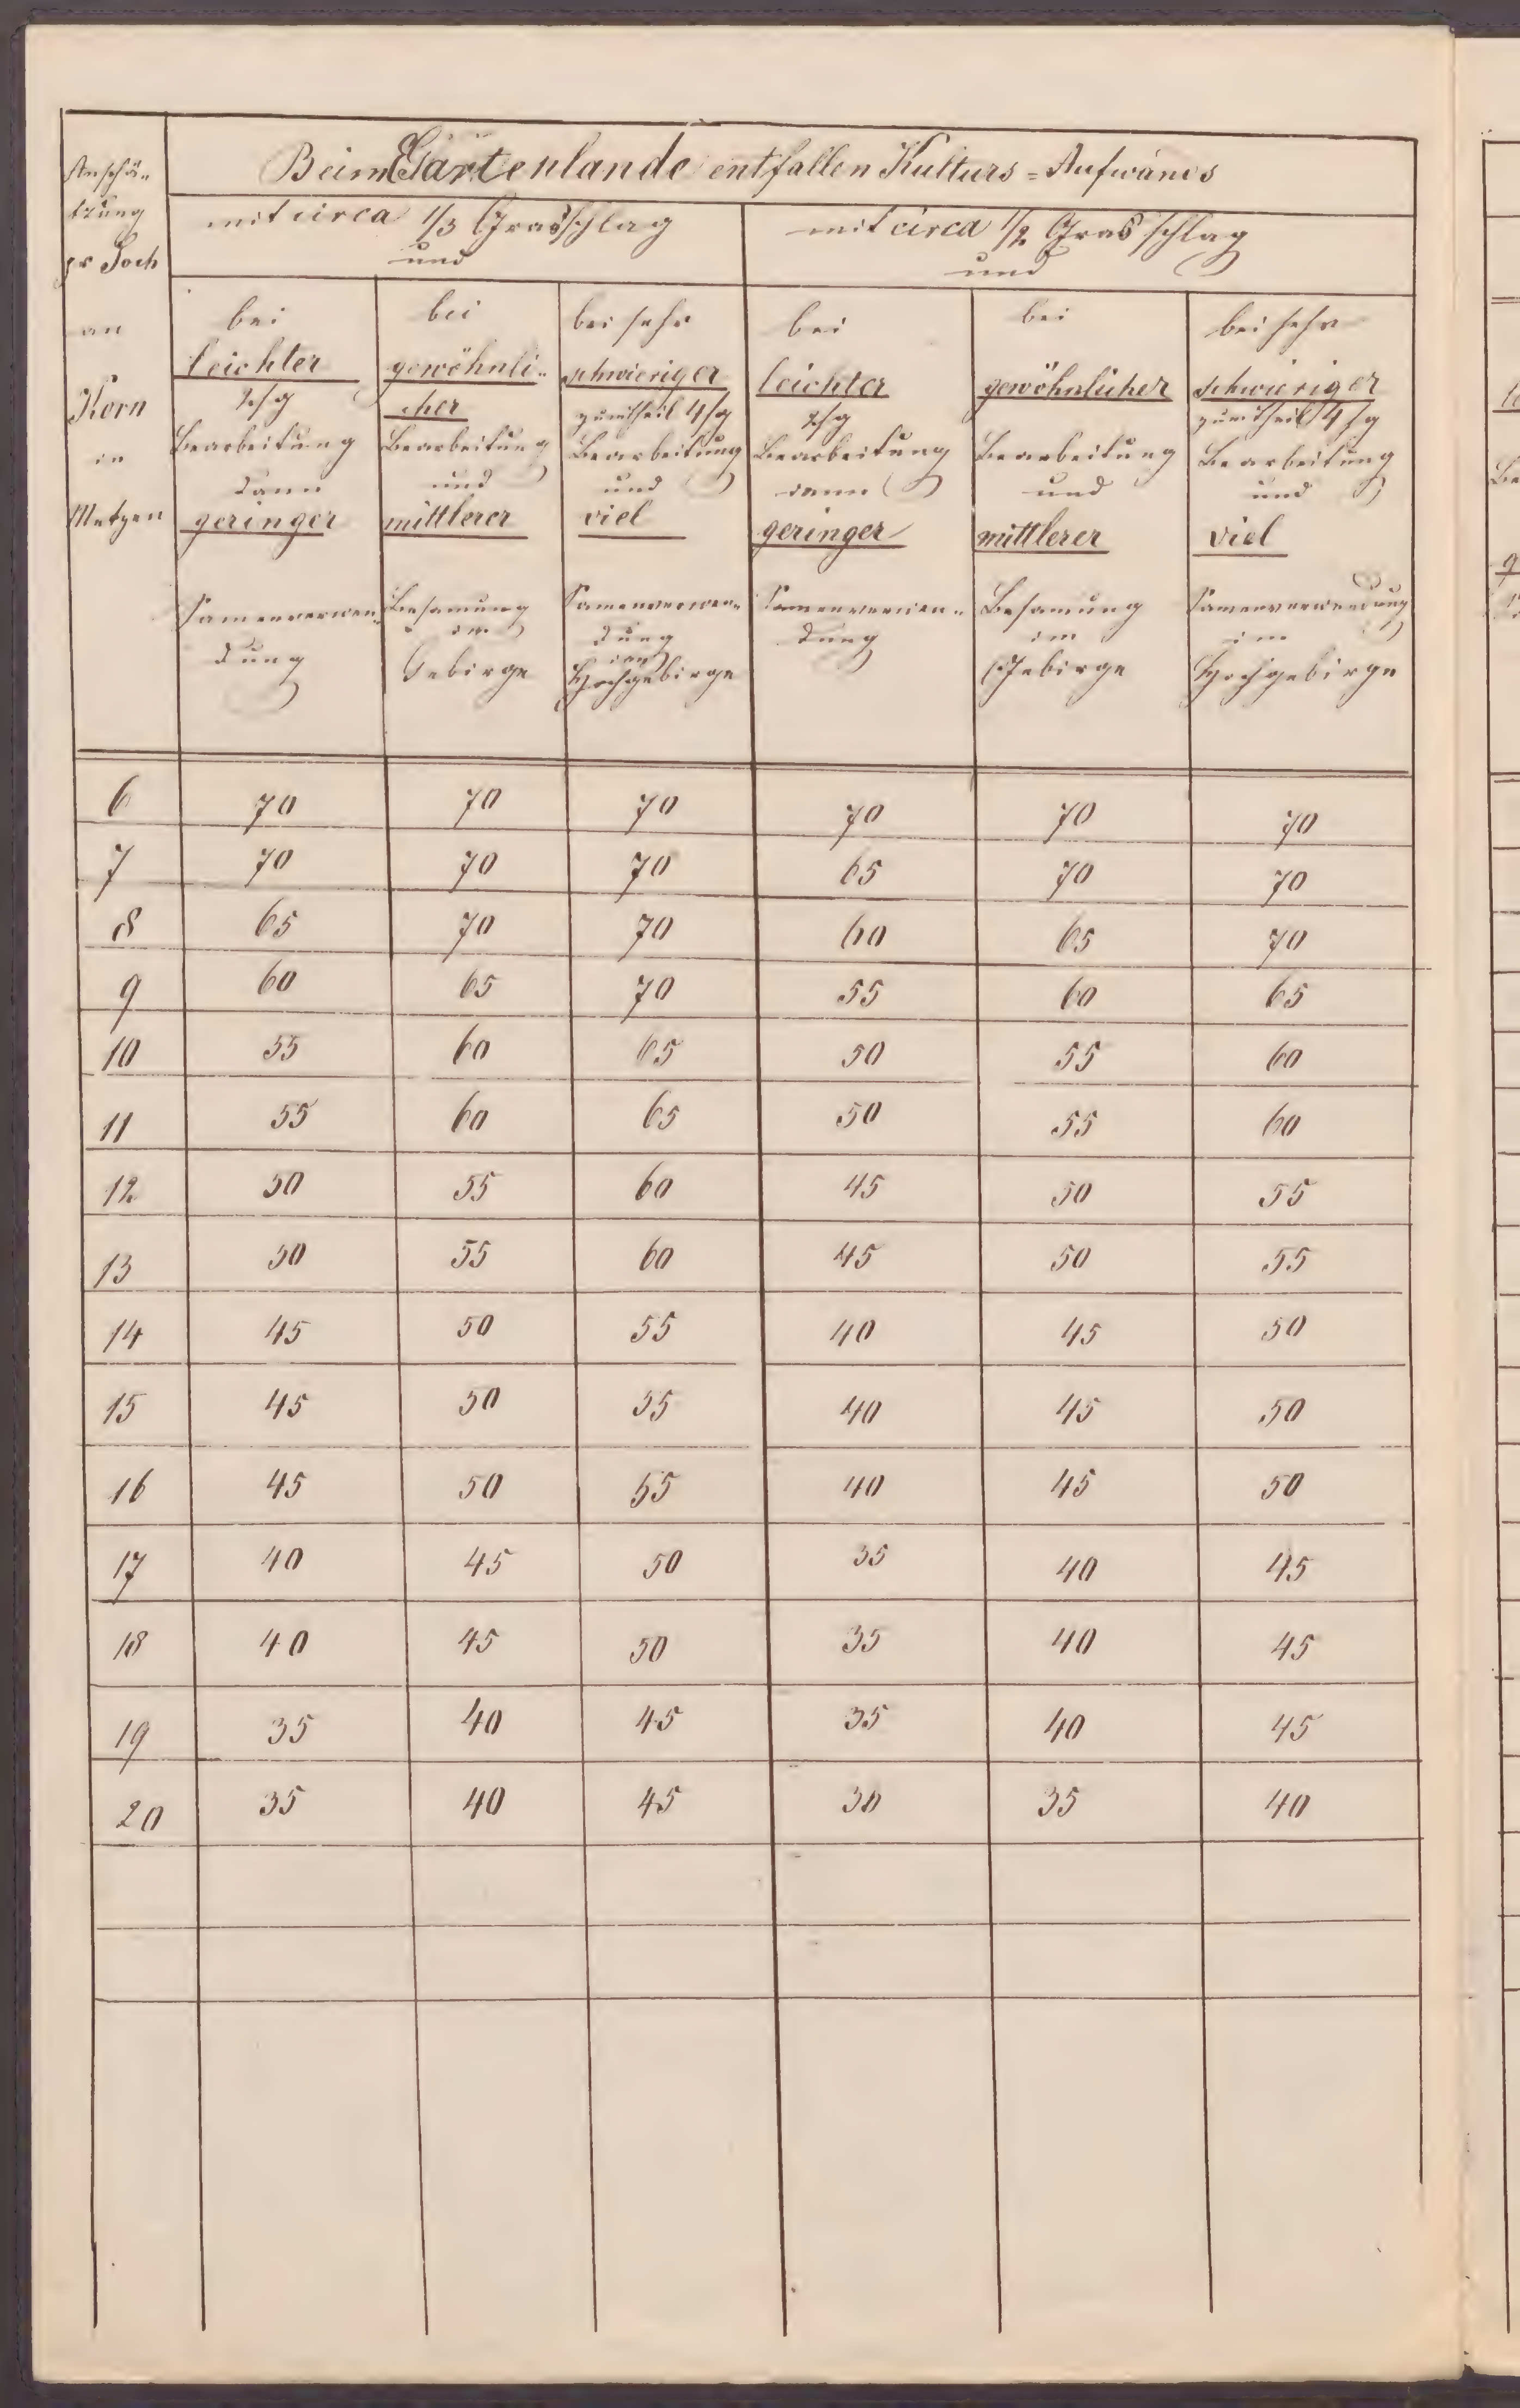 Beim Gartenlande entfallen Kulturs=Aufwands
Anschä-
tzung
pr Joch
an
Korn
in
Metzen
mit circa 1/3 Grasschlag
und
mit circa 1/2 Grasschlag
und
bei
leichter
2/sg
Bearbeitung
dann
geringer
Samenverwen-
dung
bei
gewöhnli-
cher
Bearbeitung
und
mittlerer
Besamung
im
Gebirge
bei sehr
schwieriger
zumtheil 4/sg
Bearbeitung
und
viel
Samenverwen-
dung
im
Hochgebirge
bei
leichter
2/sg
Bearbeitung
dann
geringer
Samenverwen-
dung
bei
gewöhnlicher
Bearbeitung
und
mittlerer
Besamung
im
Gebirge
bei sehr
schwieriger
zumtheil 4/sg
Bearbeitung
und
viel
Samenverwendung
im
Hochgebirge
6 70 70 70 70 70 70
7 70 70 70 65 70 70
8 65 70 70 60 65 70
9 60 65 70 55 60 65
10 55 60 65 50 55 60
11 55 60 65 50 55 60
12 50 55 60 45 50 55
13 50 55 60 45 50 55
14 45 50 55 40 45 50
15 45 50 55 40 45 50
16 45 50 55 40 45 50
17 40 45 50 35 40 45
18 40 45 50 35 40 45
19 35 40 45 35 40 45
20 35 40 45 30 35 40